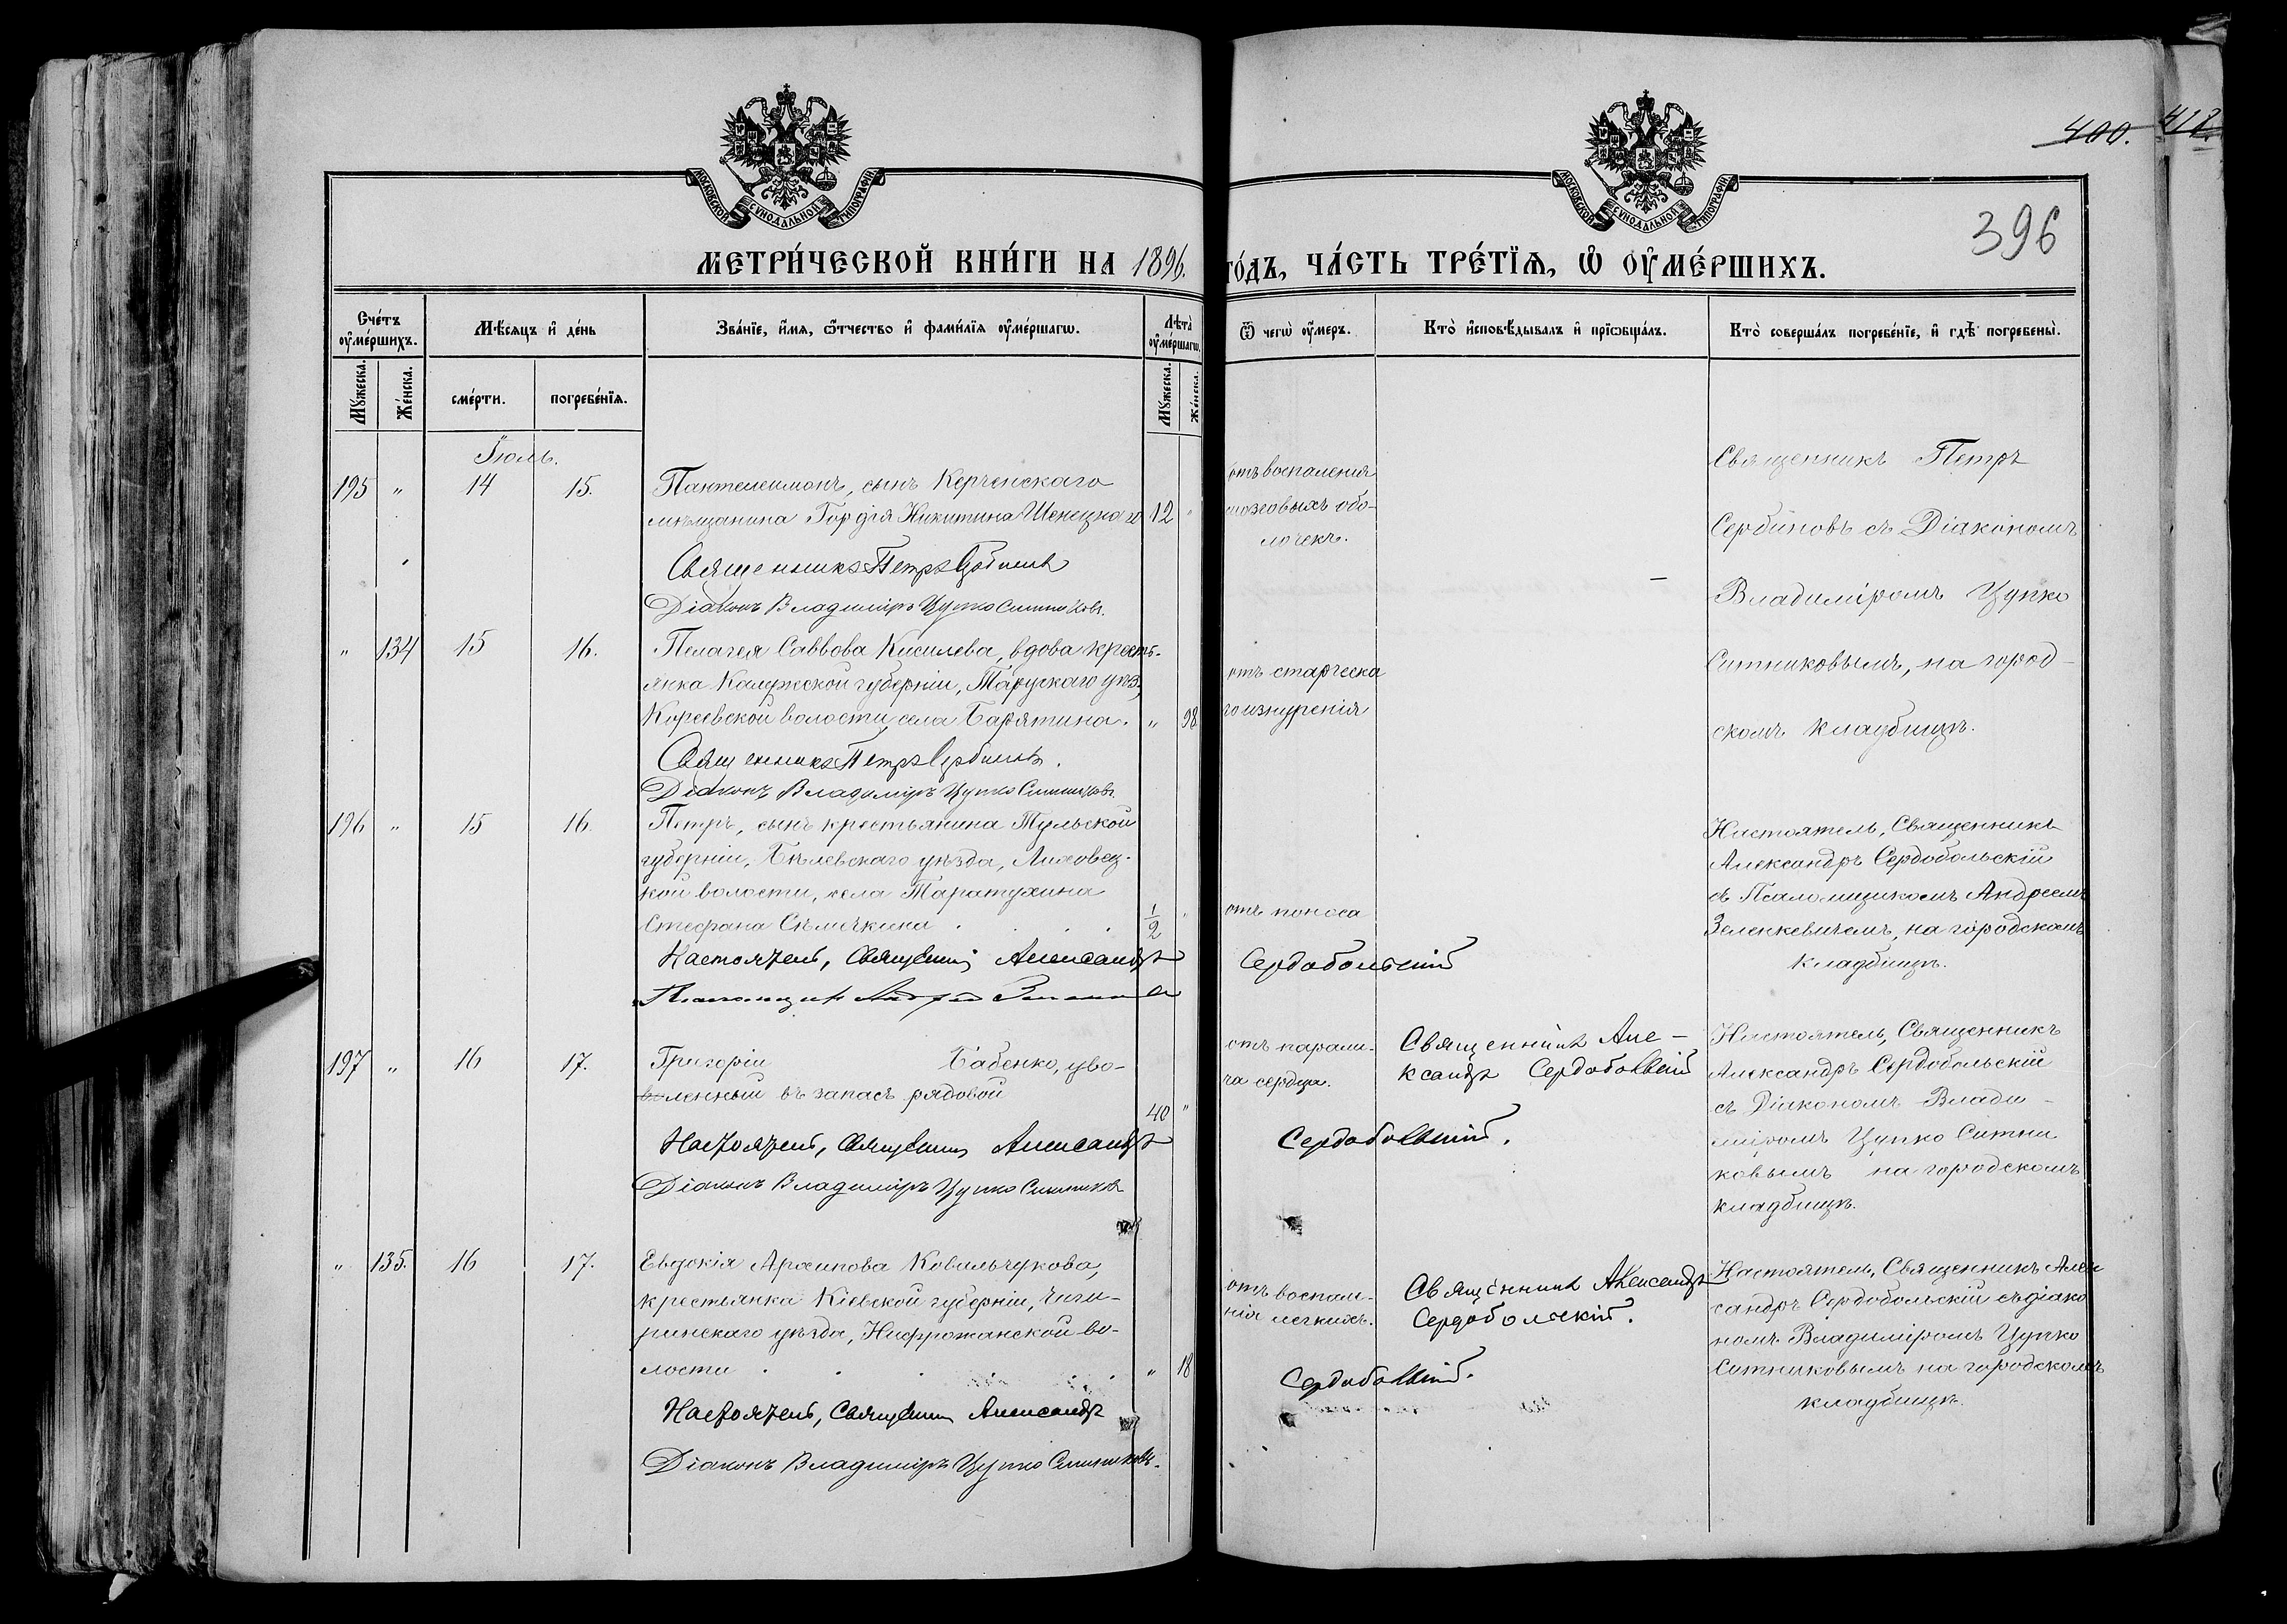 400.
418.
396
МОСКОВСКОЙ СѴНОДАЛЬНОЙ ТИПОГРАФІИ
МОСКОВСКОЙ СѴНОДАЛЬНОЙ ТИПОГРАФІИ
МЕТРИ́ЧЕСКОЙ КНИ́ГИ НА 1896.
ГО́ДЪ, ЧА́СТЬ ТРЕ́ТЇѦ, Ѡ҆ ОУ҆МЕ́РШИХЪ.
Сче́тъ оу҆ме́ршихъ.
Мѣ́сяцъ и҆ де́нь
Зва́нїе, и҆́мя, ѻ҆́тчество и҆ фами́лїя оу҆ме́ршагѡ.
Лѣ́та оу҆ме́ршагѡ.
Ѿ чегѡ̀ оу҆́меръ.
Кто̀ и҆сповѣ́дывалъ и҆ прїѡбща́лъ.
Кто̀ соверша́лъ погребе́нїе, и҆ гдѣ̀ погребены̀.
Му́жеска.
Же́нска.
сме́рти.
погребе́нїя.
Му́жеска.
Же́нска.
Іюль.
195 " 14 15.
Пантелеимонъ, сынъ Керченскаго
мѣщанина Гордія Никитина Шенецкаго 12 "
Священникъ Петръ Сербиновъ
Діаконъ Владиміръ Цупко Ситниковъ.
отъ воспаленія
мозговыхъ обо-
лочекъ.
Священникъ Петръ
Сербиновъ съ Діакономъ
Владиміромъ Цупко
Ситниковымъ, на город-
скомъ кладбищѣ.
" 134 15 16.
Пелагея Саввова Киселева, вдова кресть-
янка Калужской губерніи, Тарускаго уѣз,
Кореевской волости, села Барятина. " 98
Священникъ Петръ Сербиновъ.
Діаконъ Владиміръ Цупко Ситниковъ.
отъ старческа
го изнуренія
196 " 15 16.
Петръ, сынъ крестьянина Тульской
губерніи, Бѣлевскаго уѣзда,
кой волости, села Таратухина
Стефана Сѣмечкина 1/2 "
Настоятель, Священникъ Александръ
Псаломщикъ Андрей
отъ поноса
Сердобольскій
Настоятель, Священникъ
Александръ Сердобольскій
съ Псаломщикомъ Андреемъ
Зеленкевичемъ, на городскомъ
кладбищѣ.
197 " 16 17.
Григорій Бабенко, уво-
ленный въ запасъ рядовой
40 "
Настоятель, Священникъ Александръ
Діаконъ Владиміръ Цупко Ситниковъ
отъ парали-
ча сердца.
Сердобольскій.
Священникъ Але-
ксандръ Сердобольскій
Настоятель, Священникъ
Александръ Сердобольскій
съ Діакономъ Влади-
міромъ Цупко Ситни
ковымъ на городскомъ
кладбищѣ.
" 135. 16 17.
Евдокія Архипова Ковальчукова,
крестьянка Кіевской губерніи, Чиги-
ринскаго уѣзда, во-
лости " 18
Настоятель, Священникъ Александръ
Діаконъ Владиміръ Цупко Ситниковъ.
отъ воспале-
нія легкихъ.
Сердобольскій.
Священникъ Александръ
Сердобольскій.
Настоятель, Священникъ Алек
сандръ Сердобольскій съ діако
номъ Владиміромъ Цупко
Ситниковымъ на городскомъ
кладбищѣ.